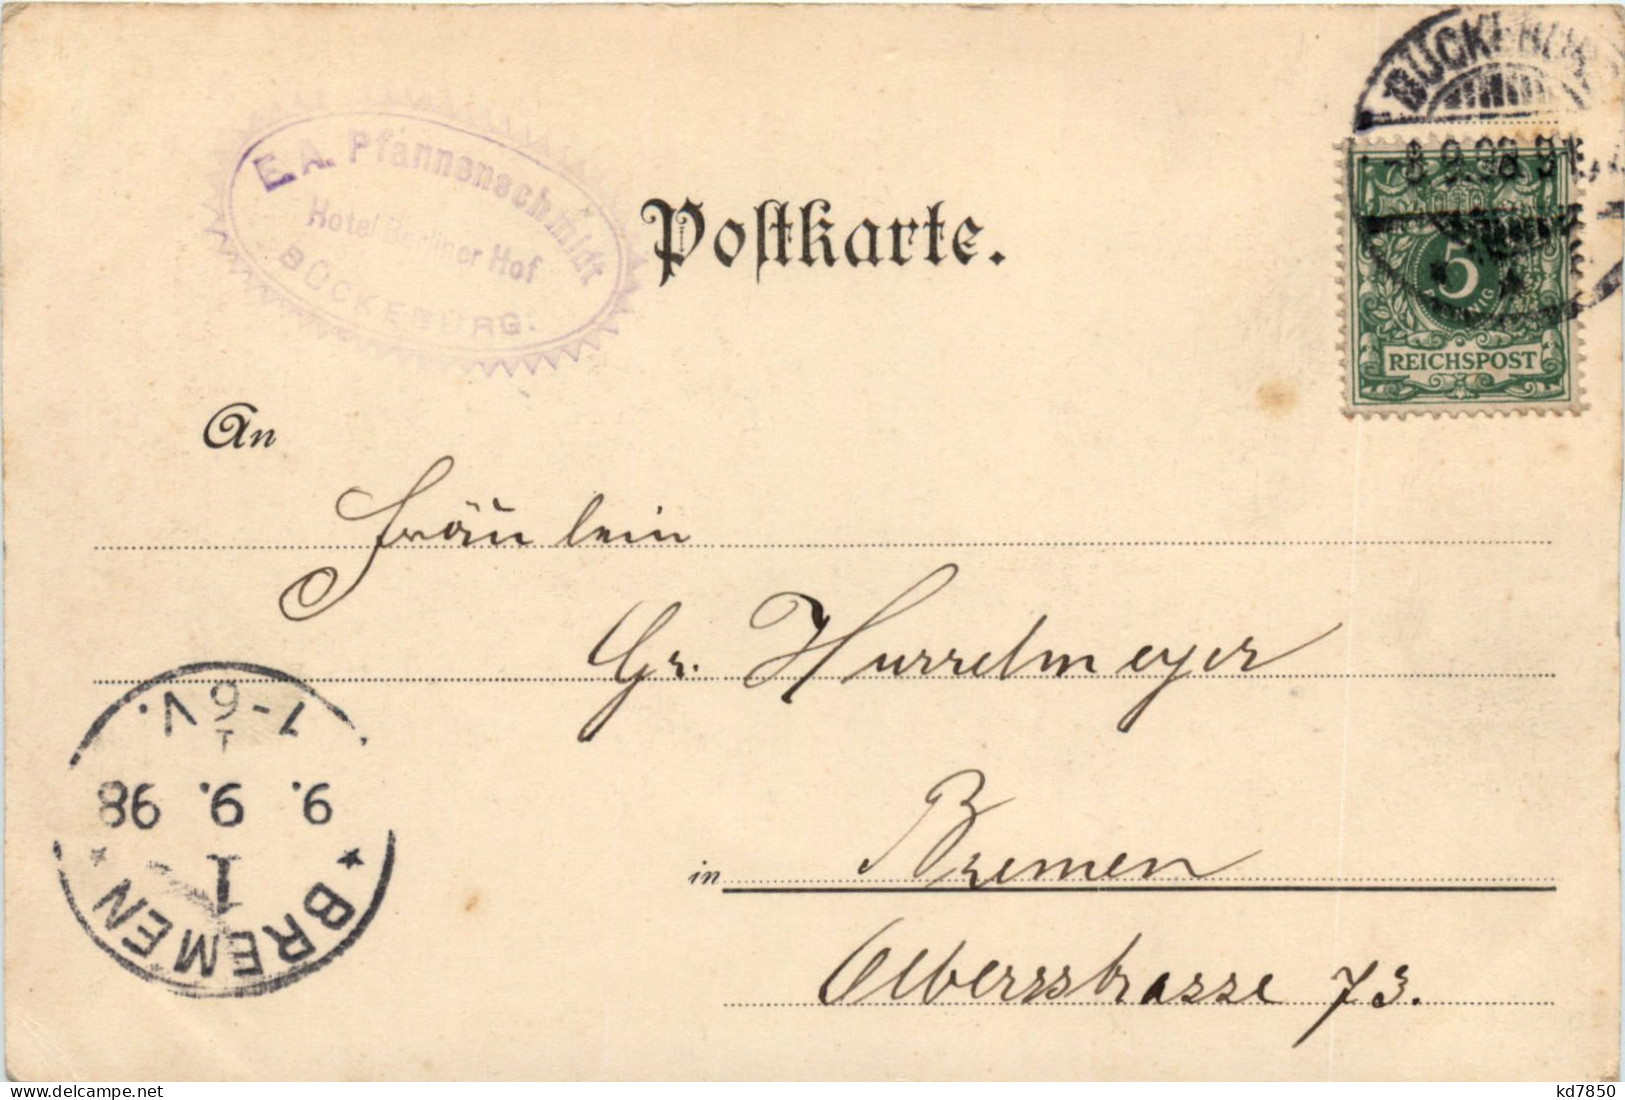 BÜCKEBURG
-8.9.98.
E.A. Pfannenschmidt
Hotel Berliner Hof
BÜCKEBURG.
Postkarte.
5
REICHSPOST
An
Fräulein
Gr. Hurrelmeyer
7-6V.
9. 9. 98
1
* BREMEN *
in Bremen
Olbersstrasse 73.
kd7850